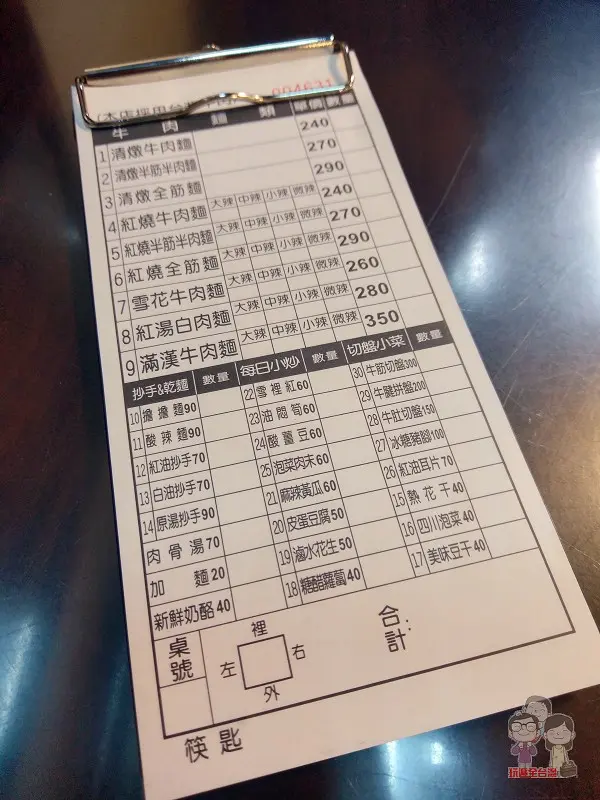 (本店採用台
牛肉麵類 單價 數量
1 清燉牛肉麵 240
2 清燉半筋半肉麵 270
3 清燉全筋麵 290
4 紅燒牛肉麵 大辣 中辣 小辣 微辣 240
5 紅燒半筋半肉麵 大辣 中辣 小辣 微辣 270
6 紅燒全筋麵 大辣 中辣 小辣 微辣 290
7 雪花牛肉麵 大辣 中辣 小辣 微辣 260
8 紅湯白肉麵 大辣 中辣 小辣 微辣 280
9 滿漢牛肉麵 大辣 中辣 小辣 微辣 350
抄手&乾麵 數量 每日小炒 數量 切盤小菜 數量
10 擔擔麵90 22 雪裡紅60 30 牛筋切盤300
11 酸辣麵90 23 油悶筍60 29 牛腱拼盤200
12 紅油抄手70 24 酸薑豆60 28 牛肚切盤150
13 白油抄手70 25 泡菜肉末60 27 冰糖豬腳100
14 原湯抄手90 21 麻辣黃瓜60 26 紅油耳片70
肉骨湯70 20 皮蛋豆腐50 15 熱花干40
加麵20 19 滷水花生50 16 四川泡菜40
新鮮奶酪40 18 糖醋蘿蔔40 17 美味豆干40
桌號
裡
左 右
外
合計:
筷 匙
玩遍全台灣